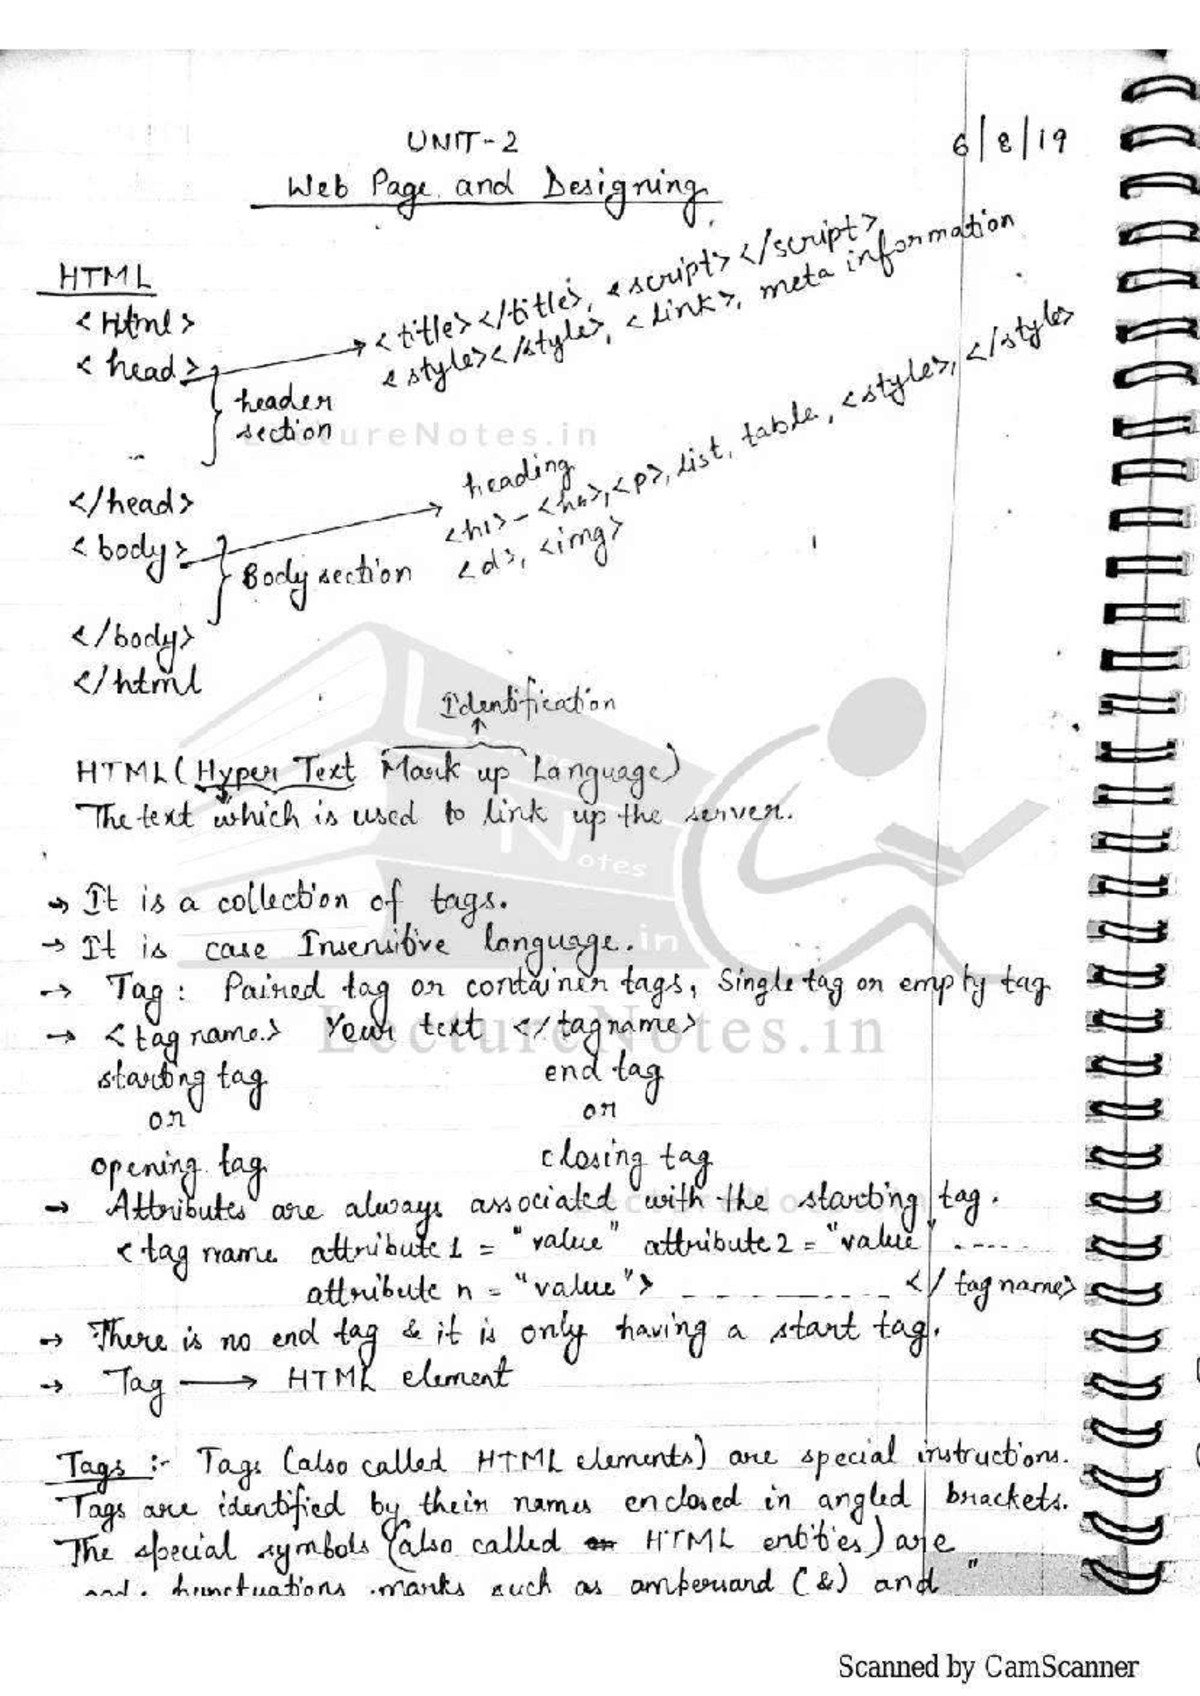 UNIT-2
6/8/19
Web Page and Designing
HTML
<Html>
<head>
header
section
<title></title>, <script></script>
<style></style>, <link>, meta information
LectureNotes.in
</head>
<body>
Body section
heading
<h1>-<hn>,<p>, list, table, <style>, </style>
<d>, <img>
</body>
</html
Identification
HTML (Hyper Text Mark up Language)
The text which is used to link up the server.
→ It is a collection of tags.
→ It is case Insensitive language.
→ Tag: Paired tag or container tags, Single tag or empty tag
→ <tag name> Your text </tagname>
LectureNotes.in
starting tag end tag
or or
opening tag closing tag
→ Attributes are always associated with the starting tag.
<tag name attribute 1 = "value" attribute 2 = "value" .....
attribute n = "value"> ---------- </tagname>
→ There is no end tag & it is only having a start tag.
→ Tag → HTML element
Tags :- Tags (also called HTML elements) are special instructions.
Tags are identified by their names enclosed in angled brackets.
The special symbols (also called HTML entities) are
punctuations marks such as ampersand (&) and "
Scanned by CamScanner